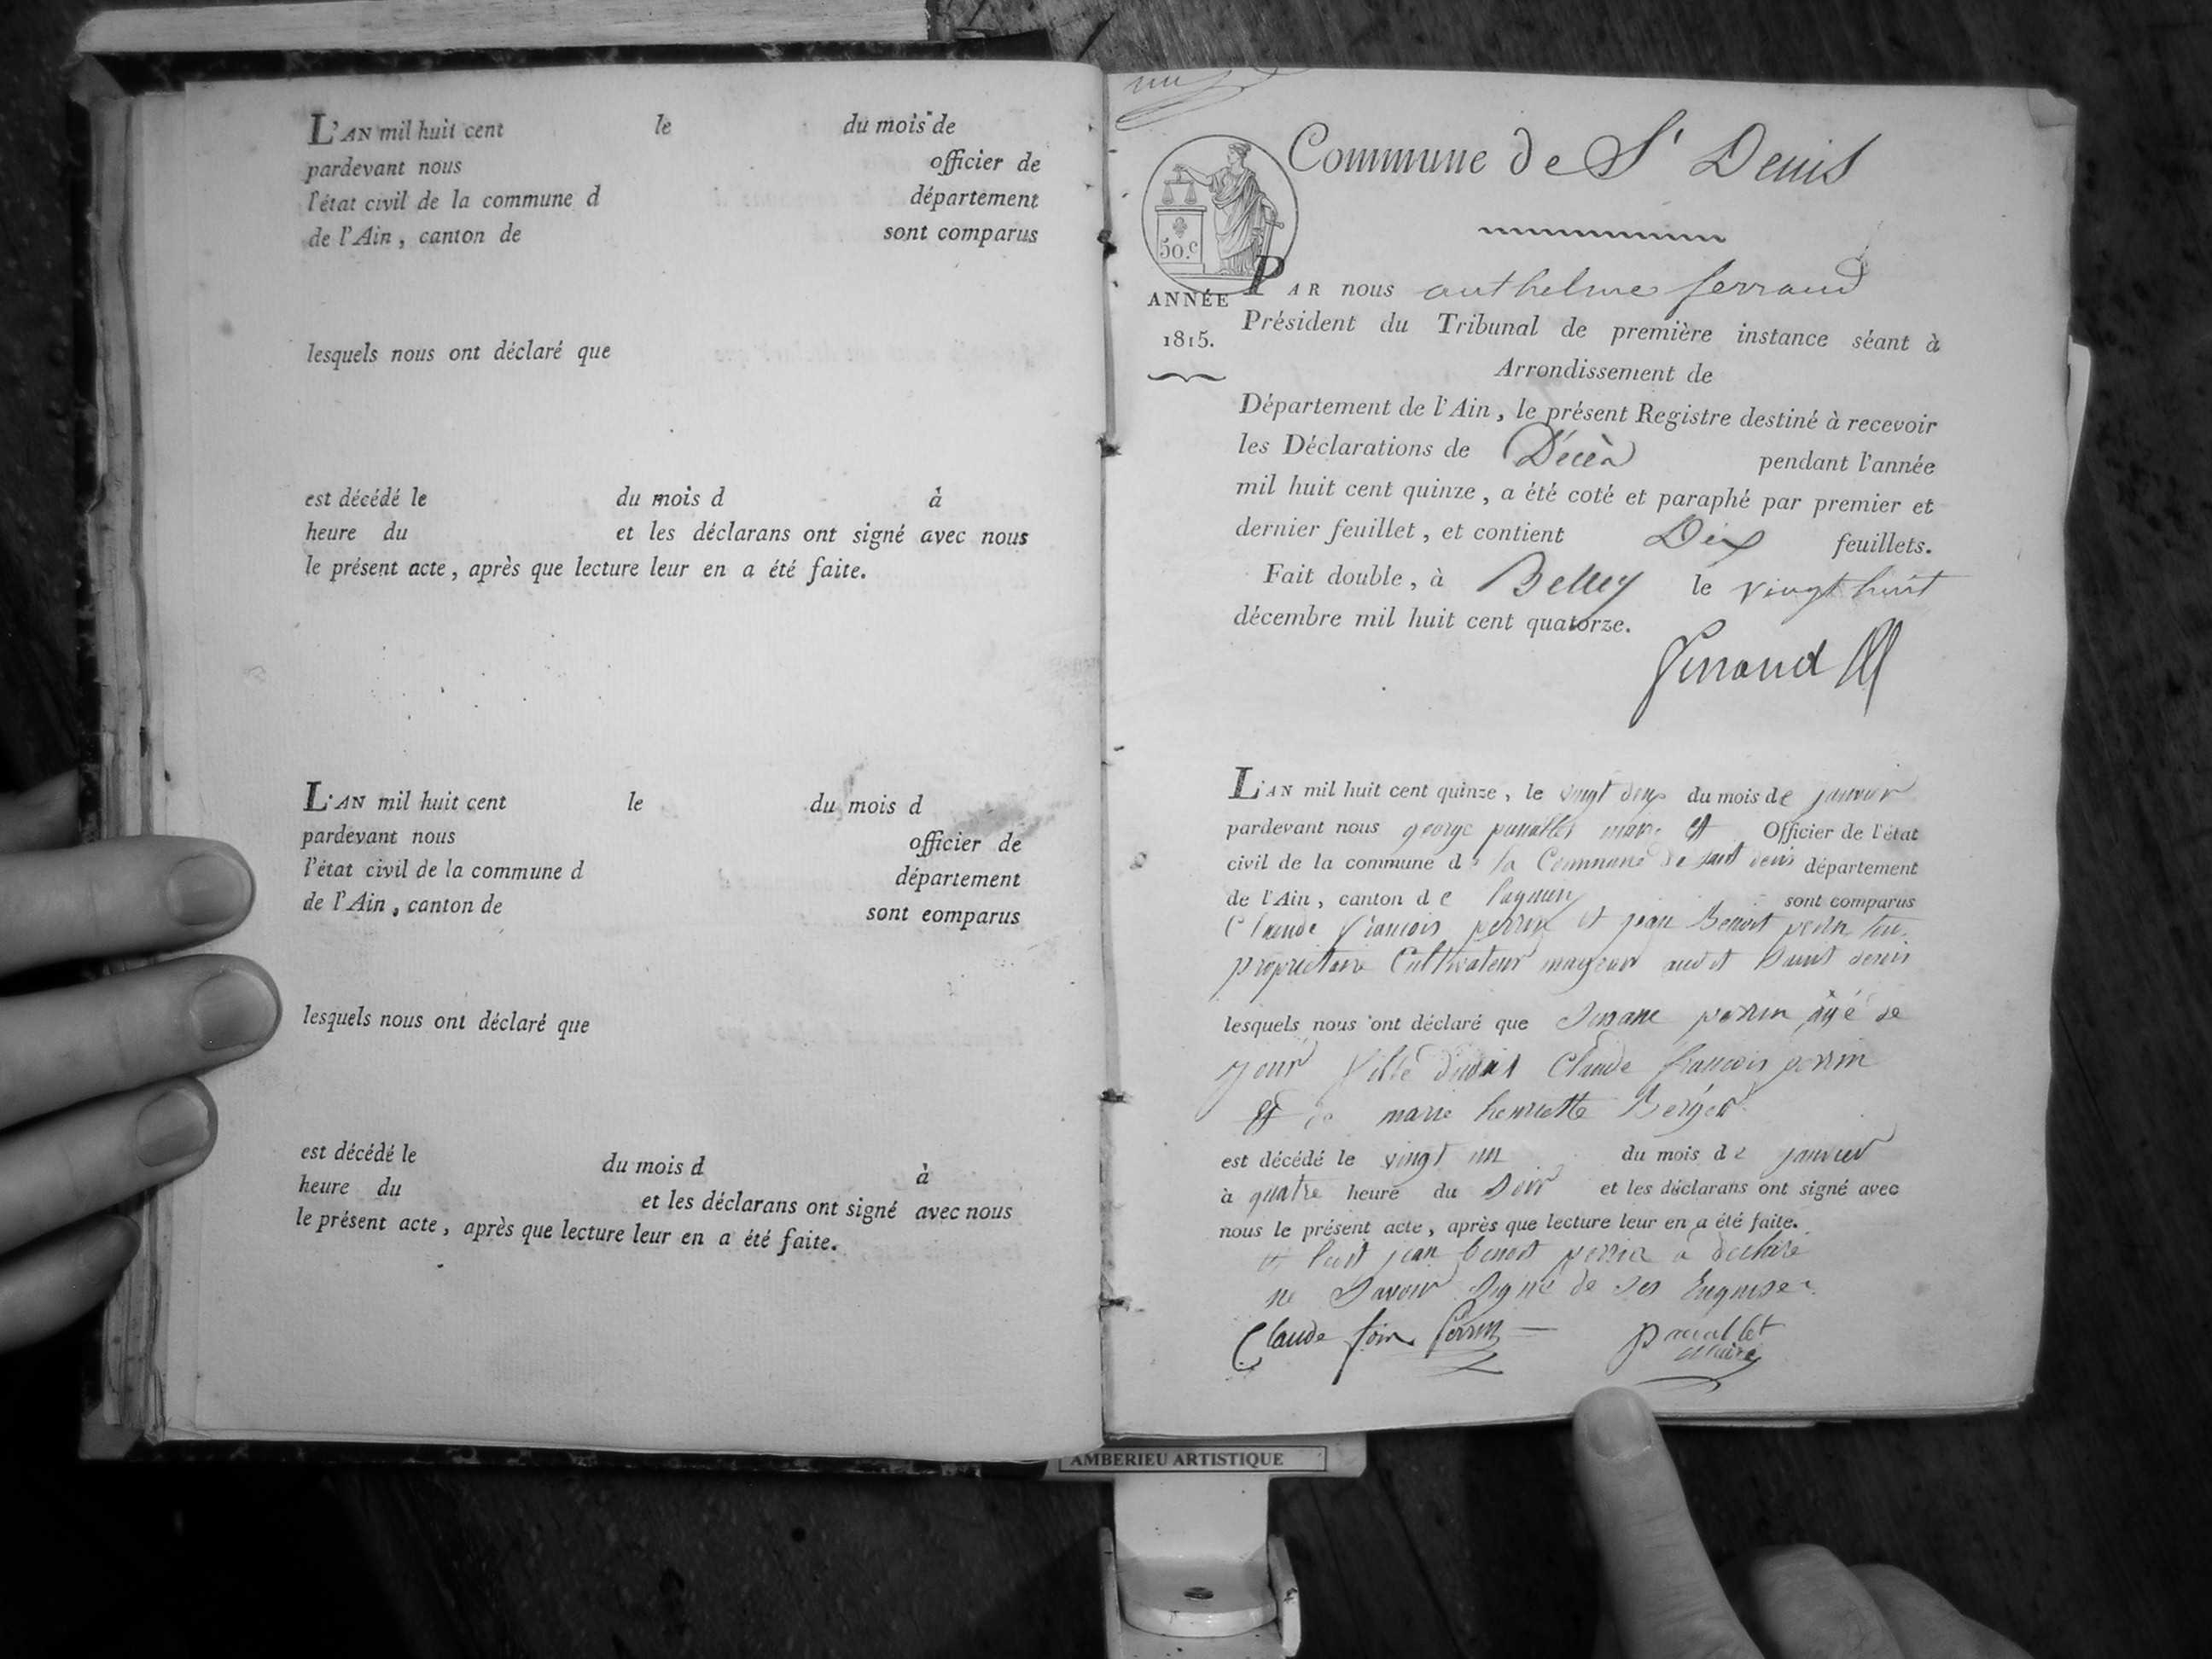 L'AN mil huit cent le du mois de
pardevant nous officier de
l'état civil de la commune d département
de l'Ain, canton de sont comparus
lesquels nous ont déclaré que
est décédé le du mois d à
heure du et les déclarans ont signé avec nous
le présent acte, après que lecture leur en a été faite.
L'AN mil huit cent le du mois d
pardevant nous officier de
l'état civil de la commune d département
de l'Ain, canton de sont comparus
lesquels nous ont déclaré que
est décédé le du mois d à
heure du et les déclarans ont signé avec nous
le présent acte, après que lecture leur en a été faite.
Commune de St Denis
50.c
ANNÉE
1815.
PAR nous anthelme ferrand
Président du Tribunal de première instance séant à
Arrondissement de
Département de l'Ain, le présent Registre destiné à recevoir
les Déclarations de Décès pendant l'année
mil huit cent quinze, a été coté et paraphé par premier et
dernier feuillet, et contient Dix feuillets.
Fait double, à Belley le vingt huit
décembre mil huit cent quatorze.
ferrand
L'AN mil huit cent quinze, le vingt deux du mois de janvier
pardevant nous george maire et Officier de l'état
civil de la commune d la Commune de saint denis département
de l'Ain, canton de lagnieu sont comparus
Claude francois perrin et jean Benoit perrin tou
propriétaire Cultivateur majeur audit Saint denis
lesquels nous ont déclaré que Susane perrin agé de
jour fille dudit Claude francois perrin
et de marie henriette Berger
est décédé le vingt un du mois de janvier
à quatre heure du Soir et les déclarans ont signé avec
nous le présent acte, après que lecture leur en a été faite.
et ledit jean benoit perrin a déclaré
ne Savoir Signé de Ses Enquise
Claude fois perrin
maire
AMBERIEU ARTISTIQUE